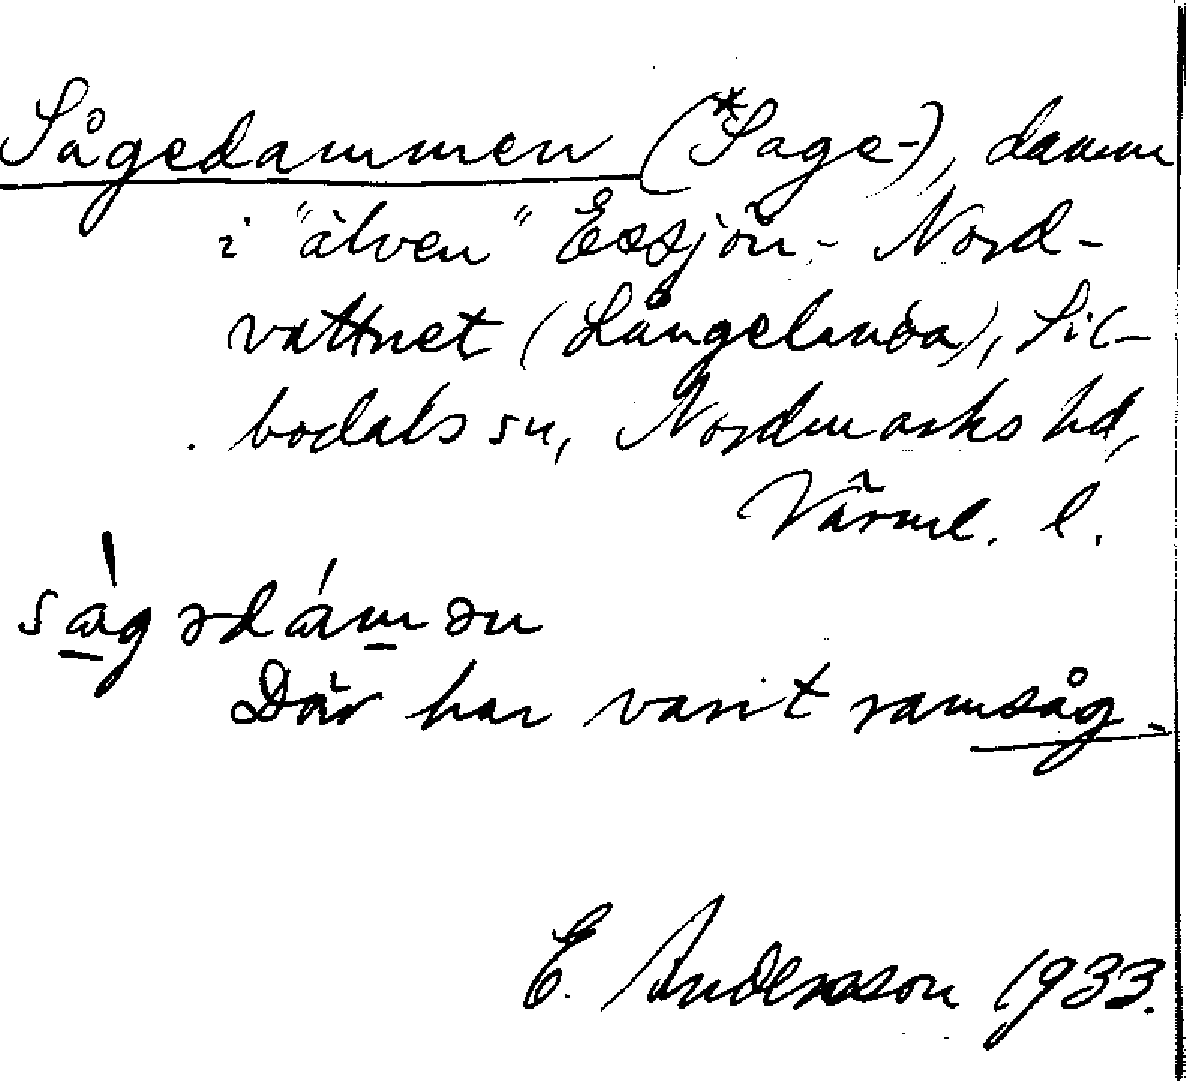 Sågedammen (*Sage-), damm
i "älven" Essjön - Nord-
vattnet (Långelanda), Sil-
bodals sn, Nordmarks hd,
Värml. l.
ságədámən
Där har varit ramsåg.
E. Andersson 1933.